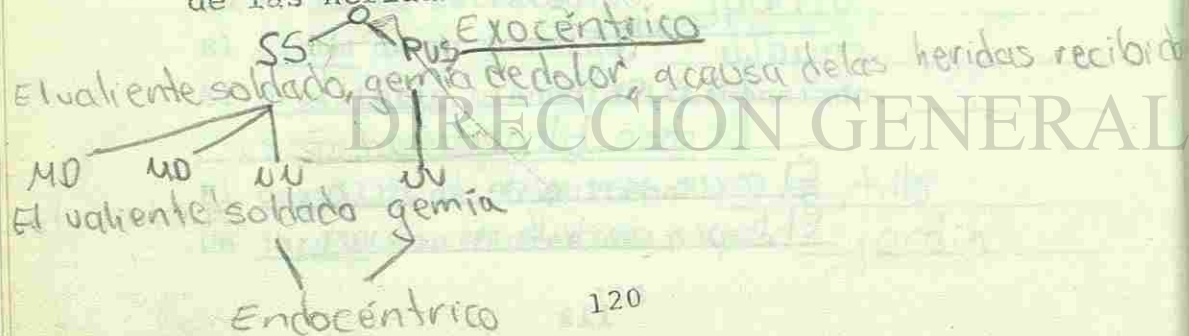 de las
O
SS PVS Exocéntrico
El valiente soldado, gemía de dolor, a causa delas heridas recibid
DIRECCIÓN GENERAL
MD MD NN NV
El valiente soldado gemía
Endocéntrico
120